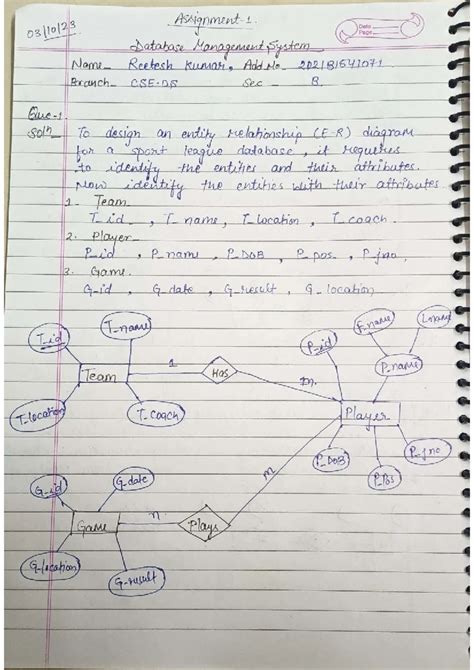 Assignment-1.
03/10/23
Date
Page
Database Management System
Name_ Reetesh Kumar. Add.No_ 2021B1541071
Branch_ CSE-DS Sec_ B.
Que-1
Soln_ To design an entity relationship (E-R) diagram
for a sport league database, it requries
to identify the entities and their attributes.
Now identify the entities with their attributes
1. Team_
T_id_, T_name, T_location, T_coach.
2. Player_
P_id, P_name, P_DOB, P_pos., P_jno,
3. Game.
G_id, G_date, G_result, G_location
T_id T_name
Team 1 Has m.
T_location T_coach
P_id F_name L_name
P_name
Player
P_DOB P_Pos P_jno
G_id G_date
Game n. Plays m
G_location G_result